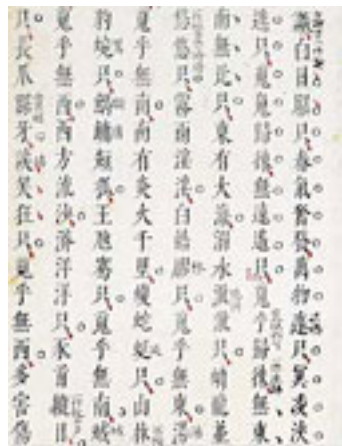 謝白日昭只春氣奮發萬物遽只冥凌浹
逃只魂魄歸徠無遠遙只魂乎歸徠無東
南無北只東有大海溺水浟浟只螭龍並
悠悠只霧雨淫淫白皓膠只魂乎無東湯
魂乎無南南有炎火千里蝮蛇蜒只山林
豹蜿只鰅鱅短狐王虺騫只魂乎無南蜮
魂乎無西西方流沙漭洋洋只豕首縱目
只長爪踞牙誂笑狂只魂乎無西多害傷